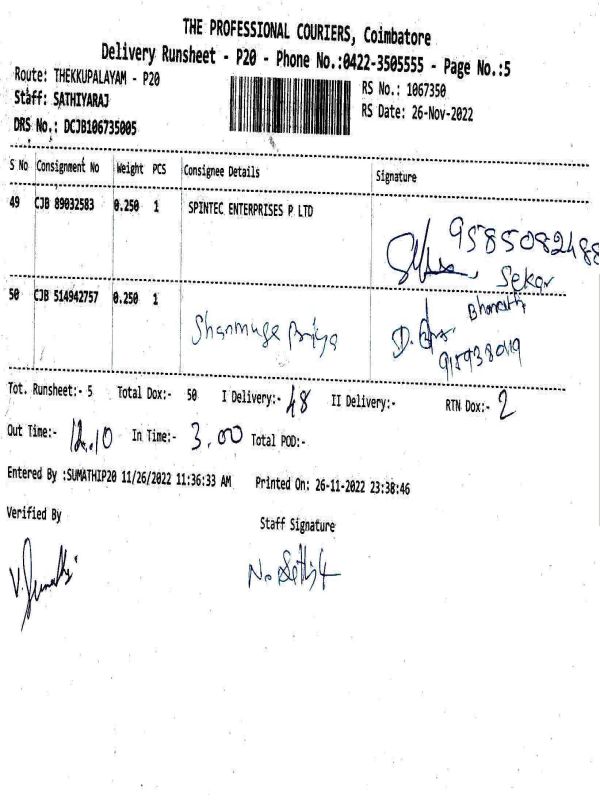 THE PROFESSIONAL COURIERS, Coimbatore
Delivery Runsheet - P20 - Phone No.:0422-3505555 - Page No.:5
Route: THEKKUPALAYAM - P20
RS No.: 1067350
Staff: SATHIYARAJ
RS Date: 26-Nov-2022
DRS No.: DCJB106735005
S No Consignment No Weight PCS Consignee Details Signature
49 CJB 89032583 0.250 1 SPINTEC ENTERPRISES P LTD
9585082488
Sekar
50 CJB 514942757 0.250 1
Bharathi
Shanmuga Priya
Tot. Runsheet:- 5 Total Dox:- 50 I Delivery:- 48 II Delivery:- RTN Dox:- 2
Out Time:- 12.10 In Time:- 3.00 Total POD:-
Entered By :SUMATHIP20 11/26/2022 11:36:33 AM Printed On: 26-11-2022 23:38:46
Verified By
Staff Signature